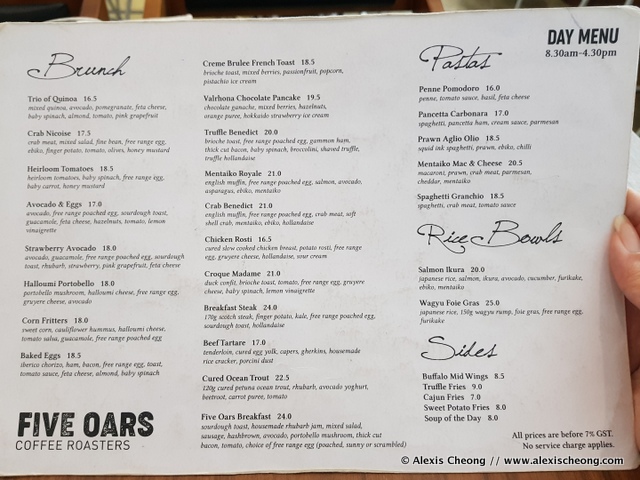 DAY MENU
8.30am-4.30pm
Brunch
Trio of Quinoa 16.5
mixed quinoa, avocado, pomegranate, feta cheese,
baby spinach, almond, tomato, pink grapefruit
Crab Nicoise 17.5
crab meat, mixed salad, fine bean, free range egg,
ebiko, finger potato, tomato, olives, honey mustard
Heirloom Tomatoes 18.5
heirloom tomatoes, baby spinach, free range egg,
baby carrot, honey mustard
Avocado & Eggs 17.0
avocado, free range poached egg, sourdough toast,
guacamole, feta cheese, hazelnuts, tomato, lemon
vinaigrette
Strawberry Avocado 18.0
avocado, guacamole, free range poached egg, sourdough
toast, rhubarb, strawberry, pink grapefruit, feta cheese
Halloumi Portobello 18.0
portobello mushroom, halloumi cheese, free range egg,
gruyere cheese, avocado
Corn Fritters 18.0
sweet corn, cauliflower hummus, halloumi cheese,
tomato salsa, guacamole, free range poached egg
Baked Eggs 18.5
iberico chorizo, ham, bacon, free range egg, toast,
tomato sauce, feta cheese, almond, baby spinach
FIVE OARS
COFFEE ROASTERS
Creme Brulee French Toast 18.5
brioche toast, mixed berries, passionfruit, popcorn,
pistachio ice cream
Valrhona Chocolate Pancake 19.5
chocolate ganache, mixed berries, hazelnuts,
orange puree, hokkaido strawberry ice cream
Truffle Benedict 20.0
brioche toast, free range poached egg, gammon ham,
thick cut bacon, baby spinach, broccolini, shaved truffle,
truffle hollandaise
Mentaiko Royale 21.0
english muffin, free range poached egg, salmon, avocado,
asparagus, ebiko, mentaiko
Crab Benedict 21.0
english muffin, free range poached egg, crab meat, soft
shell crab, mentaiko, ebiko, hollandaise
Chicken Rosti 16.5
cured slow cooked chicken breast, potato rosti, free range
egg, gruyere cheese, housemade slaw, sour cream
Croque Madame 21.0
duck confit, brioche toast, tomato, free range egg, gruyere
cheese, baby spinach, lemon vinaigrette
Breakfast Steak 24.0
170g scotch steak, finger potato, kale, free range poached egg,
sourdough toast, hollandaise
Beef Tartare 17.0
tenderloin, cured egg yolk, capers, gherkins, housemade
rice cracker, porcini dust
Cured Ocean Trout 22.5
120g cured petuna ocean trout, rhubarb, avocado yoghurt,
beetroot, carrot puree, tomato
Five Oars Breakfast 24.0
sourdough toast, housemade rhubarb jam, mixed salad,
sausage, hashbrown, avocado, portobello mushroom, thick cut
bacon, tomato, choice of free range egg (poached, sunny or scrambled)
Pastas
Penne Pomodoro 16.0
penne, tomato sauce, basil, feta cheese
Pancetta Carbonara 17.0
spaghetti, pancetta ham, cream sauce, parmesan
Prawn Aglio Olio 18.5
squid ink spaghetti, prawn, ebiko, chilli
Mentaiko Mac & Cheese 20.5
macaroni, prawn, crab meat, parmesan,
cheddar, mentaiko
Spaghetti Granchio 18.5
spaghetti, crab meat, tomato sauce
Rice Bowls
Salmon Ikura 20.0
japanese rice, salmon, ikura, avocado, cucumber, furikake,
ebiko, mentaiko
Wagyu Foie Gras 25.0
japanese rice, 150g wagyu rump, foie gras, free range egg,
furikake
Sides
Buffalo Mid Wings 8.5
Truffle Fries 9.0
Cajun Fries 7.0
Sweet Potato Fries 8.0
Soup of the Day 8.0
All prices are before 7% GST.
No service charge applies.
© Alexis Cheong // www.alexischeong.com